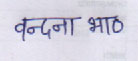 वन्दना भाठ